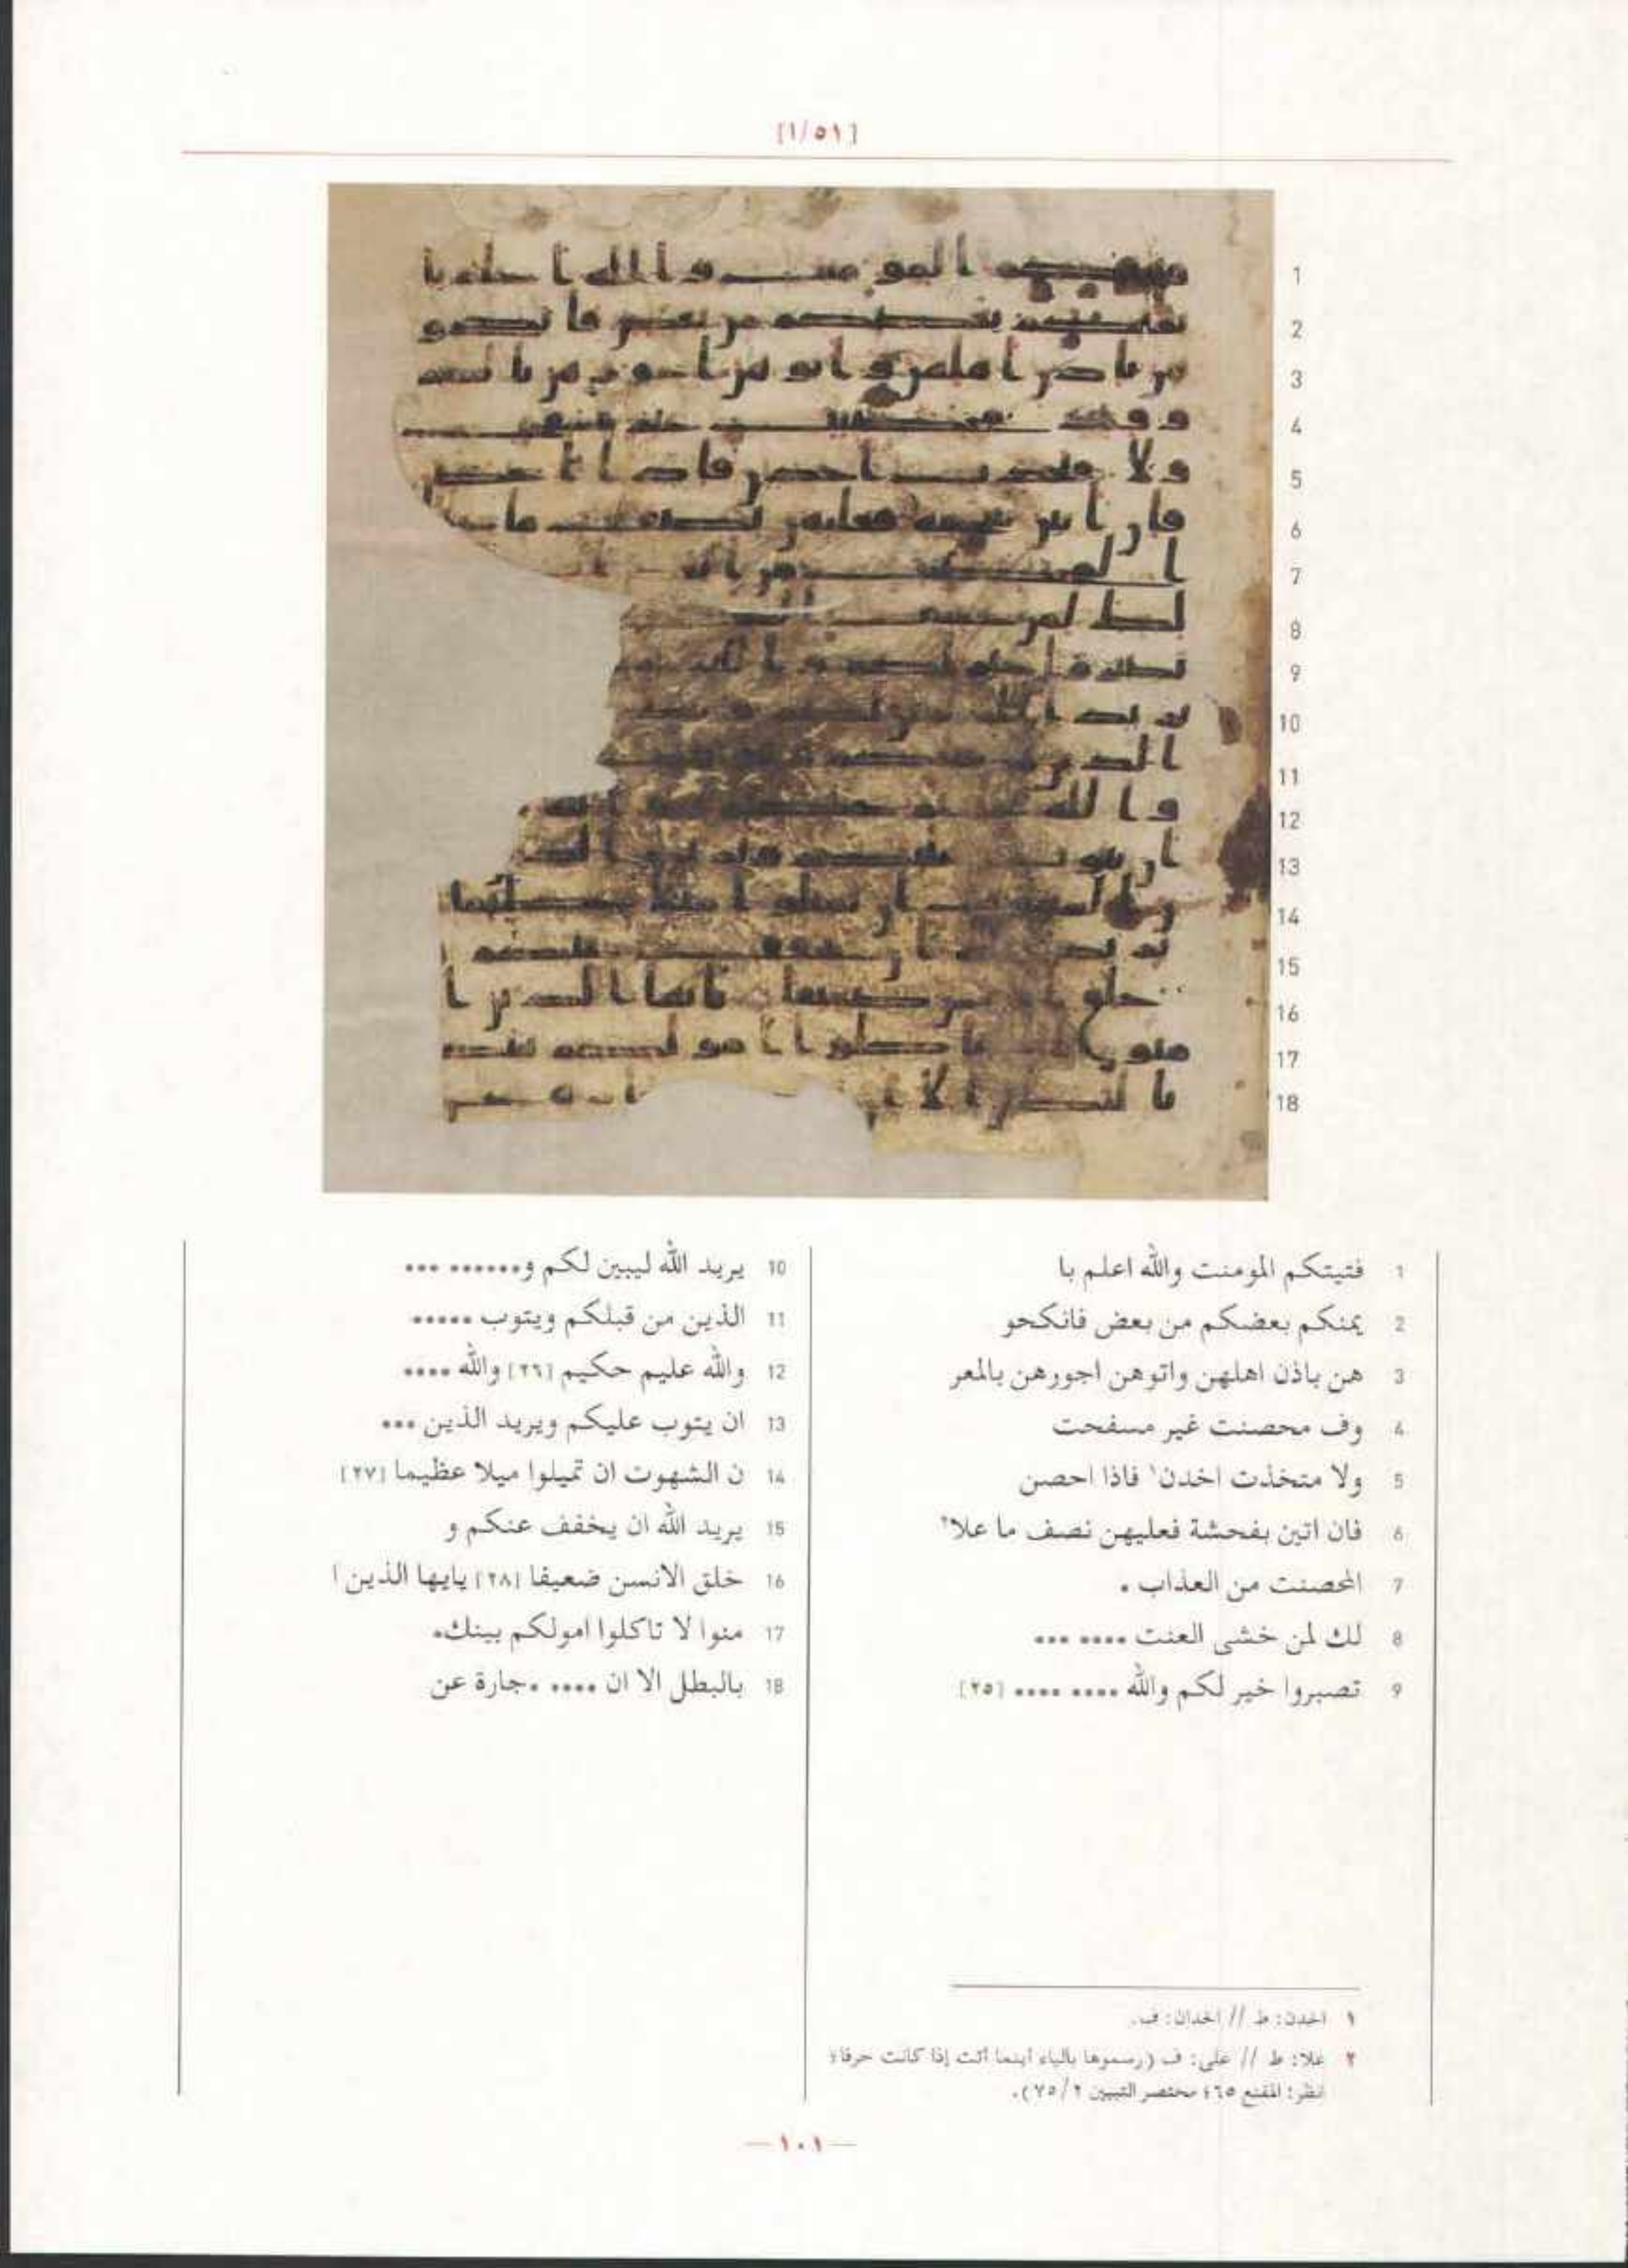 [١/٥١]
1 فتيتكم المومنت والله اعلم با
2 يمنكم بعضكم من بعض فانكحو
3 هن باذن اهلهن واتوهن اجورهن بالمعر
4 وف محصنت غير مسفحت
5 ولا متخذت اخدن١ فاذا احصن
6 فان اتين بفحشة فعليهن نصف ما علا٢
7 المحصنت من العذاب •
8 لك لمن خشى العنت •••• •••
9 تصبروا خير لكم والله •••• •••• [٢٥]
10 يريد الله ليبين لكم و•••••• •••
11 الذين من قبلكم ويتوب •••••
12 والله عليم حكيم [٢٦] والله ••••
13 ان يتوب عليكم ويريد الذين •••
14 ن الشهوت ان تميلوا ميلا عظيما [٢٧]
15 يريد الله ان يخفف عنكم و
16 خلق الانسن ضعيفا [٢٨] يايها الذين ا
17 منوا لا تاكلوا امولكم بينك•
18 بالبطل الا ان •••• •جارة عن
١ اخدن: ط // اخدان: ف.
٢ علا: ط // على: ف (رسموها بالياء أينما أتت إذا كانت حرفا؛
انظر: المقنع ٦٥؛ مختصر التبيين ٧٥/٢).
—١٠١—